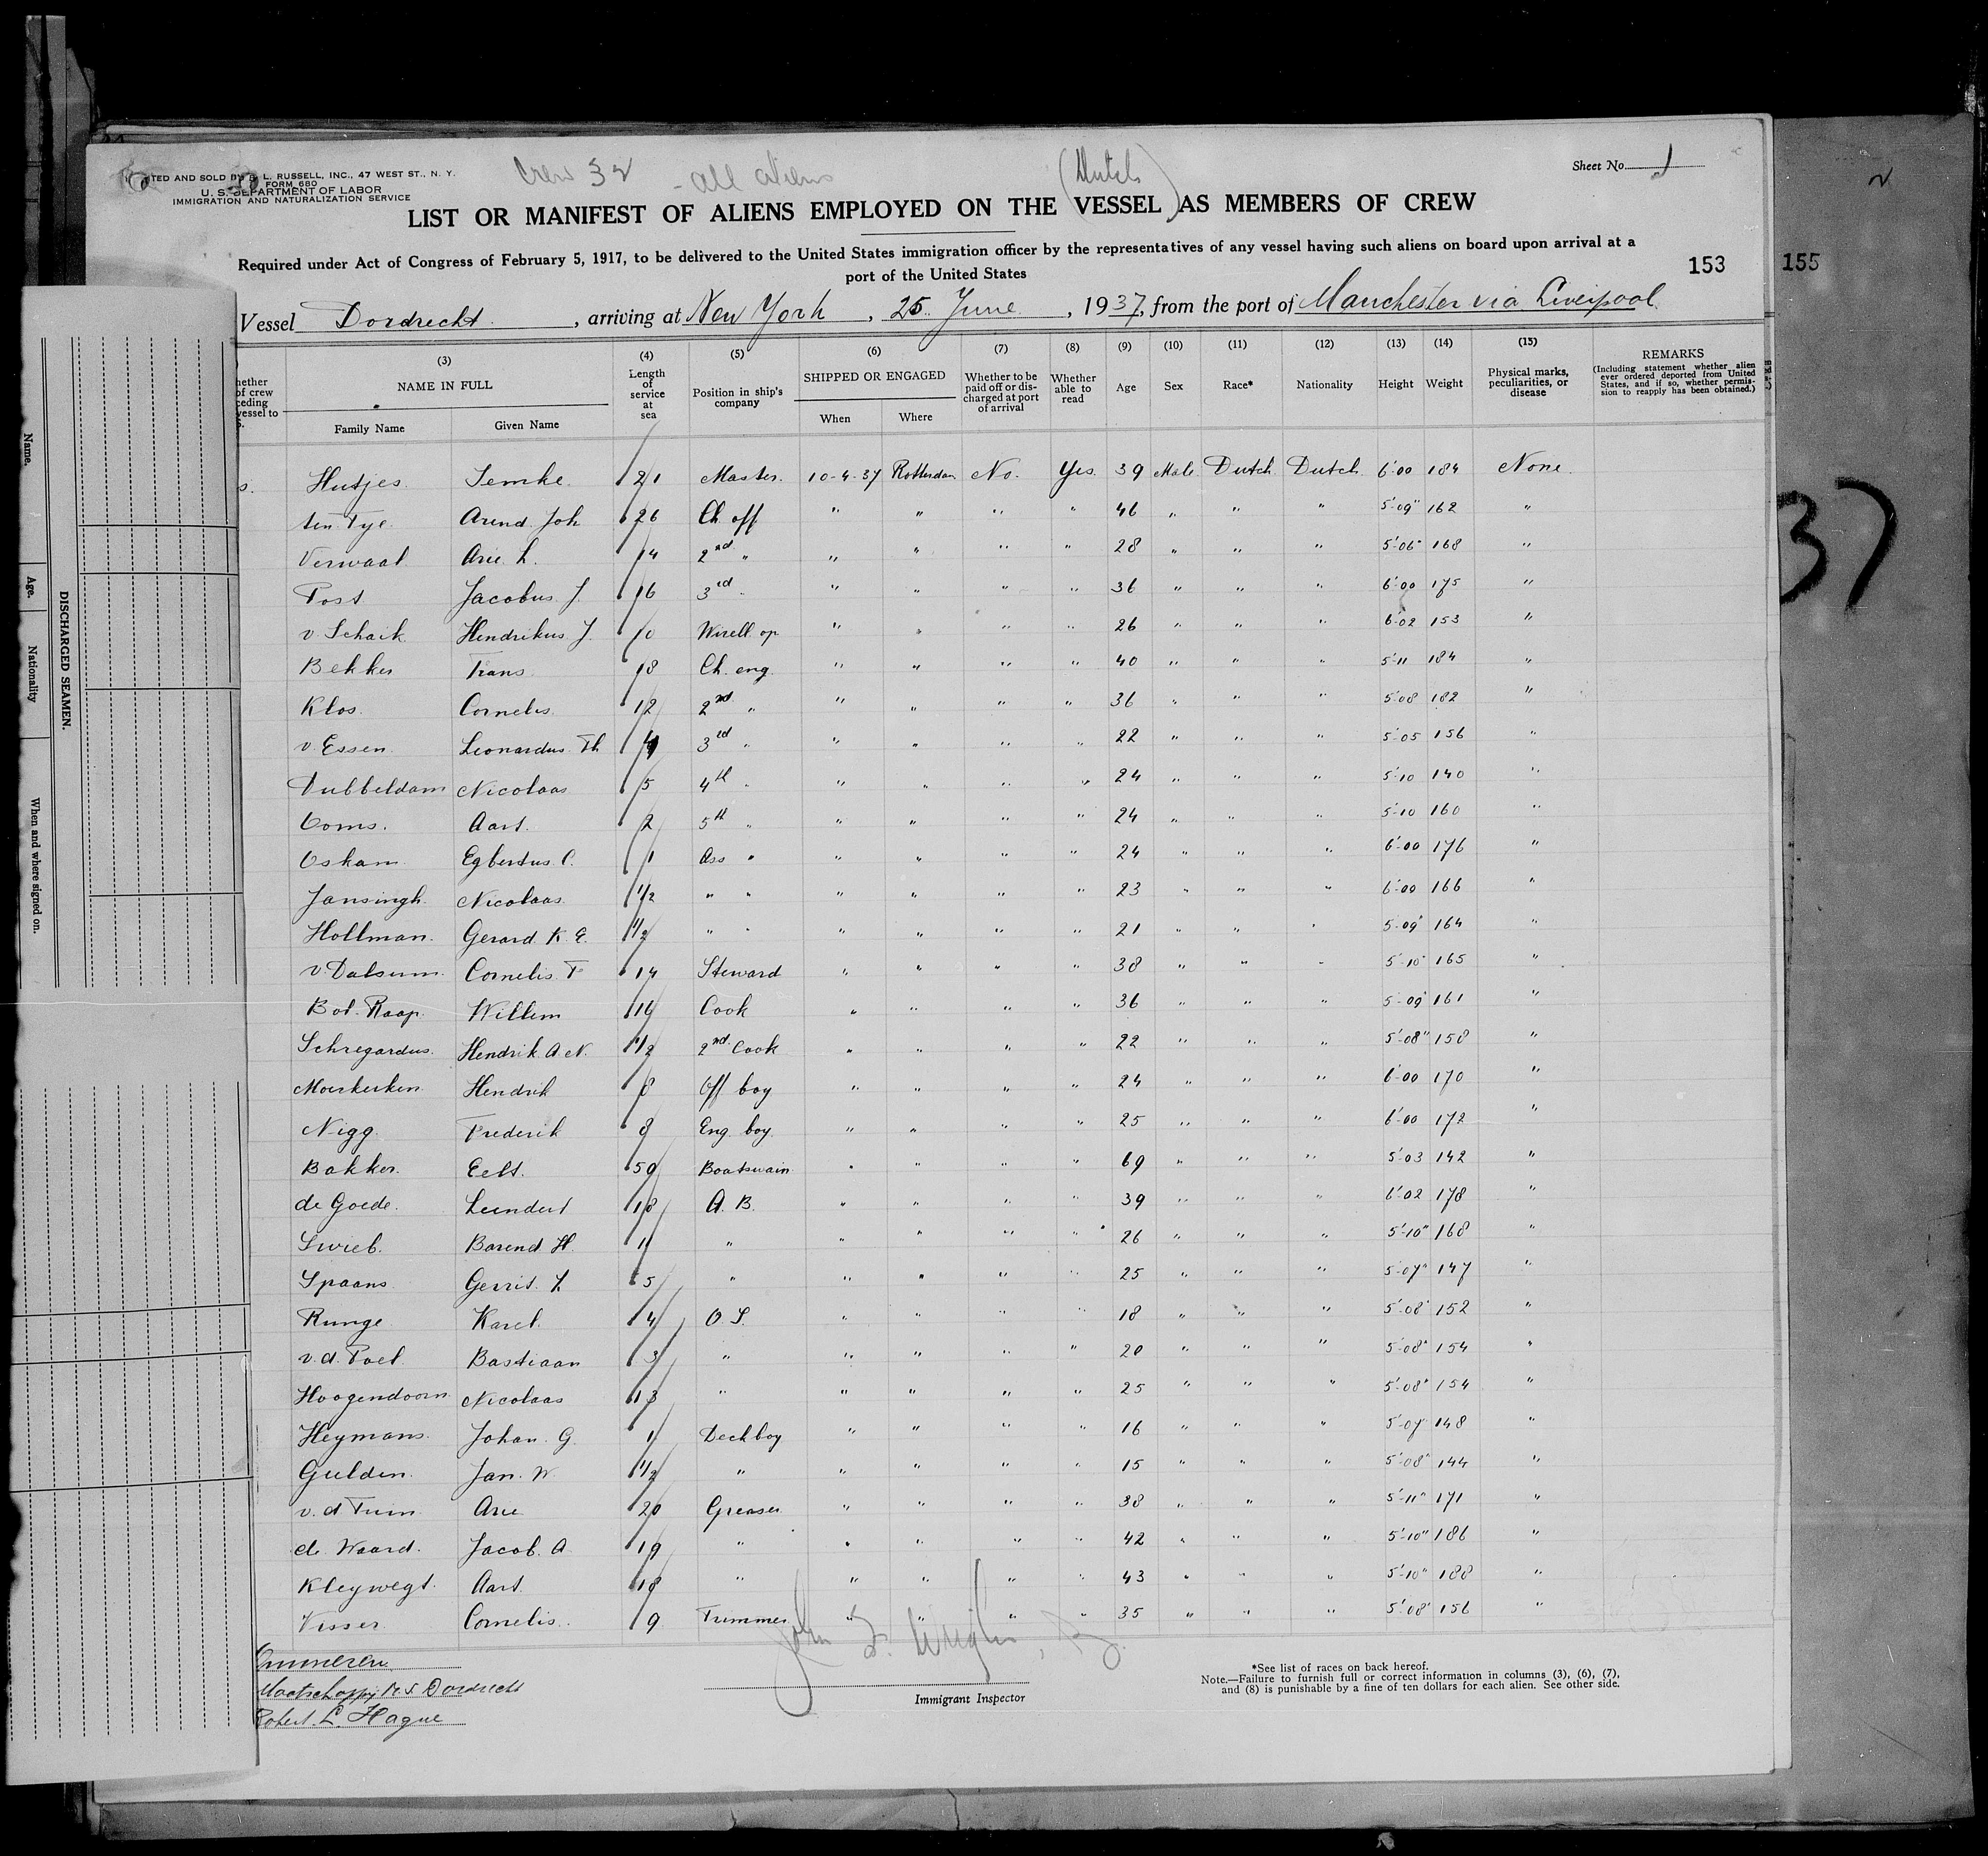 Crew 32 - all aliens (Dutch)
Sheet No. 1
TED AND SOLD BY L. RUSSELL, INC., 47 WEST ST., N. Y.
FORM 680
U. S. DEPARTMENT OF LABOR
IMMIGRATION AND NATURALIZATION SERVICE
LIST OR MANIFEST OF ALIENS EMPLOYED ON THE VESSEL AS MEMBERS OF CREW
Required under Act of Congress of February 5, 1917, to be delivered to the United States immigration officer by the representatives of any vessel having such aliens on board upon arrival at a
port of the United States
153
155
Vessel Dordrecht, arriving at New York, 25 June, 1937, from the port of Manchester via Liverpool
(3) (4) (5) (6) (7) (8) (9) (10) (11) (12) (13) (14) (15)
NAME IN FULL
Family Name Given Name
Length of service at sea
Position in ship's company
SHIPPED OR ENGAGED
When Where
Whether to be paid off or discharged at port of arrival
Whether able to read
Age Sex Race* Nationality Height Weight
Physical marks, peculiarities, or disease
REMARKS
(Including statement whether alien ever ordered deported from United States, and if so, whether permission to reapply has been obtained.)
Hutjes Semke 21 Master 10-4-37 Rotterdam No. Yes 39 Male Dutch Dutch 6'00 184 None
ten Tye Arend Joh 26 Ch off " " " " 46 " " " 5'09" 162 "
Verwaal Arie L. 14 2nd " " " " " 28 " " " 5'06" 168 "
Post Jacobus J. 16 3rd " " " " " 36 " " " 6'00 175 "
v Schaik Hendrikus J. 10 Wirell op " " " " 26 " " " 6'02 153 "
Bekker Frans 18 Ch. eng. " " " " 40 " " " 5'11 184 "
Klos. Cornelis 12 2nd " " " " " 36 " " " 5'08 182 "
v. Essen Leonardus Th 3rd " " " " " 22 " " " 5'05 156 "
Dubbeldam Nicolaas 5 4th " " " " " 24 " " " 5'10 140 "
Ooms. Aart. 2 5th " " " " " 24 " " " 5'10 160 "
Oskam Egbertus C. 1 Ass " " " " " 24 " " " 6'00 176 "
Jansingh Nicolaas 1/2 " " " " " " 23 " " " 6'00 166 "
Hollman. Gerard K. E. 1/2 " " " " " " 21 " " " 5'09" 164 "
v Dalsum Cornelis P 14 Steward " " " " 38 " " " 5'10" 165 "
Bot-Raap Willem 14 Cook " " " " 36 " " " 5'09" 161 "
Schregardus Hendrik A. N. 1/2 2nd Cook " " " " 22 " " " 5'08" 158 "
Moerkerken Hendrik 8 Off boy " " " " 24 " " " 6'00 170 "
Nigg Frederik 8 Eng. boy " " " " 25 " " " 6'00 172 "
Bakker. Eelt. 50 Boatswain " " " " 69 " " " 5'03 142 "
de Goede. Leendert 18 A. B. " " " " 39 " " " 6'02 178 "
Swieb. Barend H. 11 " " " " " 26 " " " 5'10" 168 "
Spaans Gerrit. 5 " " " " " 25 " " " 5'07" 147 "
Runge Karel 4 O S. " " " " 18 " " " 5'08" 152 "
v. d. Poel Bastiaan 3 " " " " " 20 " " " 5'08" 154 "
Hoogendoorn Nicolaas 13 " " " " " 25 " " " 5'08" 154 "
Heymans Johan G. 1 Deckboy " " " " 16 " " " 5'07" 148 "
Gulden Jan. W. 1/2 " " " " " 15 " " " 5'08" 144 "
v. d Tuin Arie 20 Greaser " " " " 38 " " " 5'11" 171 "
de Waard. Jacob. A 19 " " " " " 42 " " " 5'10" 186 "
Kleywegt. Aart. 18 " " " " " 43 " " " 5'10" 188 "
Visser Cornelis 9 Trimmer " " " " 35 " " " 5'08" 156 "
Ommeren
Maatschappij M.S. Dordrecht
Robert. L. Hague
John F. Wright
Immigrant Inspector
*See list of races on back hereof.
Note.—Failure to furnish full or correct information in columns (3), (6), (7),
and (8) is punishable by a fine of ten dollars for each alien. See other side.
DISCHARGED SEAMEN.
Name. Age. Nationality When and where signed on.
37